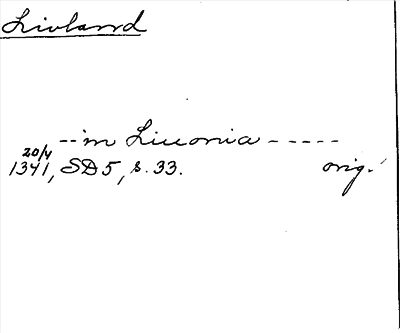 Livland
--in Liuonia-----
20/4
1341, SD5, s. 33. orig.